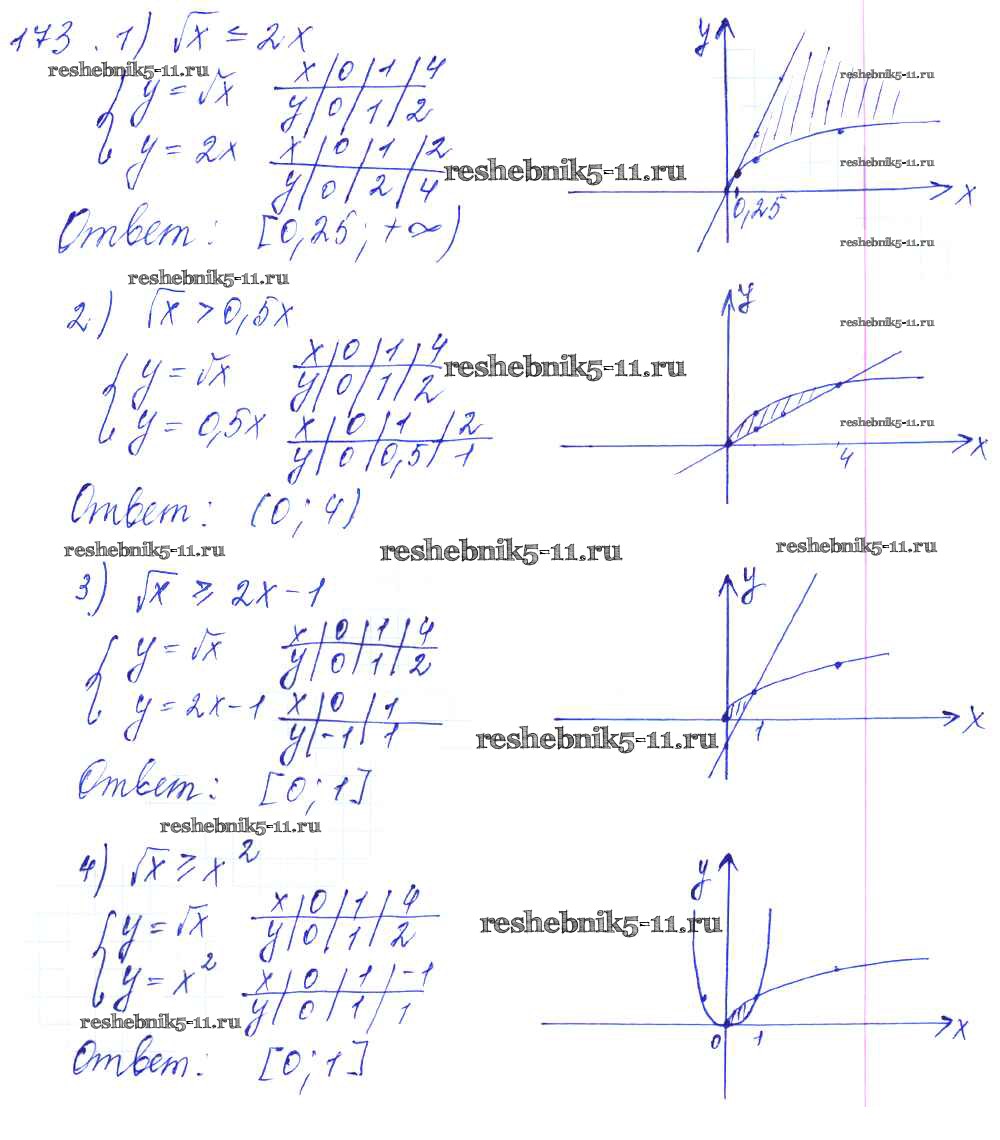 173. 1) √x ≤ 2x
reshebnik5-11.ru
y = √x
x | 0 | 1 | 4
y | 0 | 1 | 2
y = 2x
x | 0 | 1 | 2
y | 0 | 2 | 4
reshebnik5-11.ru
Ответ: [0,25; +∞)
y
reshebnik5-11.ru
reshebnik5-11.ru
x
0,25
reshebnik5-11.ru
reshebnik5-11.ru
2) √x > 0,5x
y = √x
x | 0 | 1 | 4
y | 0 | 1 | 2
reshebnik5-11.ru
y = 0,5x
x | 0 | 1 | 2
y | 0 | 0,5 | 1
Ответ: (0; 4)
y
reshebnik5-11.ru
reshebnik5-11.ru
4
x
reshebnik5-11.ru
reshebnik5-11.ru
reshebnik5-11.ru
3) √x ≥ 2x - 1
y = √x
x | 0 | 1 | 4
y | 0 | 1 | 2
y = 2x - 1
x | 0 | 1
y | -1 | 1
reshebnik5-11.ru
Ответ: [0; 1]
y
1
x
reshebnik5-11.ru
4) √x ≥ x²
y = √x
x | 0 | 1 | 4
y | 0 | 1 | 2
reshebnik5-11.ru
y = x²
x | 0 | 1 | -1
y | 0 | 1 | 1
reshebnik5-11.ru
Ответ: [0; 1]
y
0
1
x